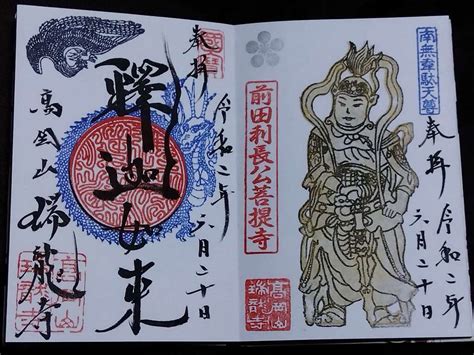 南無韋駄天尊
奉拝
令和二年
六月二十日
前田利長公菩提寺
高岡山
瑞龍寺
國寶
奉拝
令和二年
六月二十日
釋迦如来
高岡山
瑞龍寺
高岡山
瑞龍寺